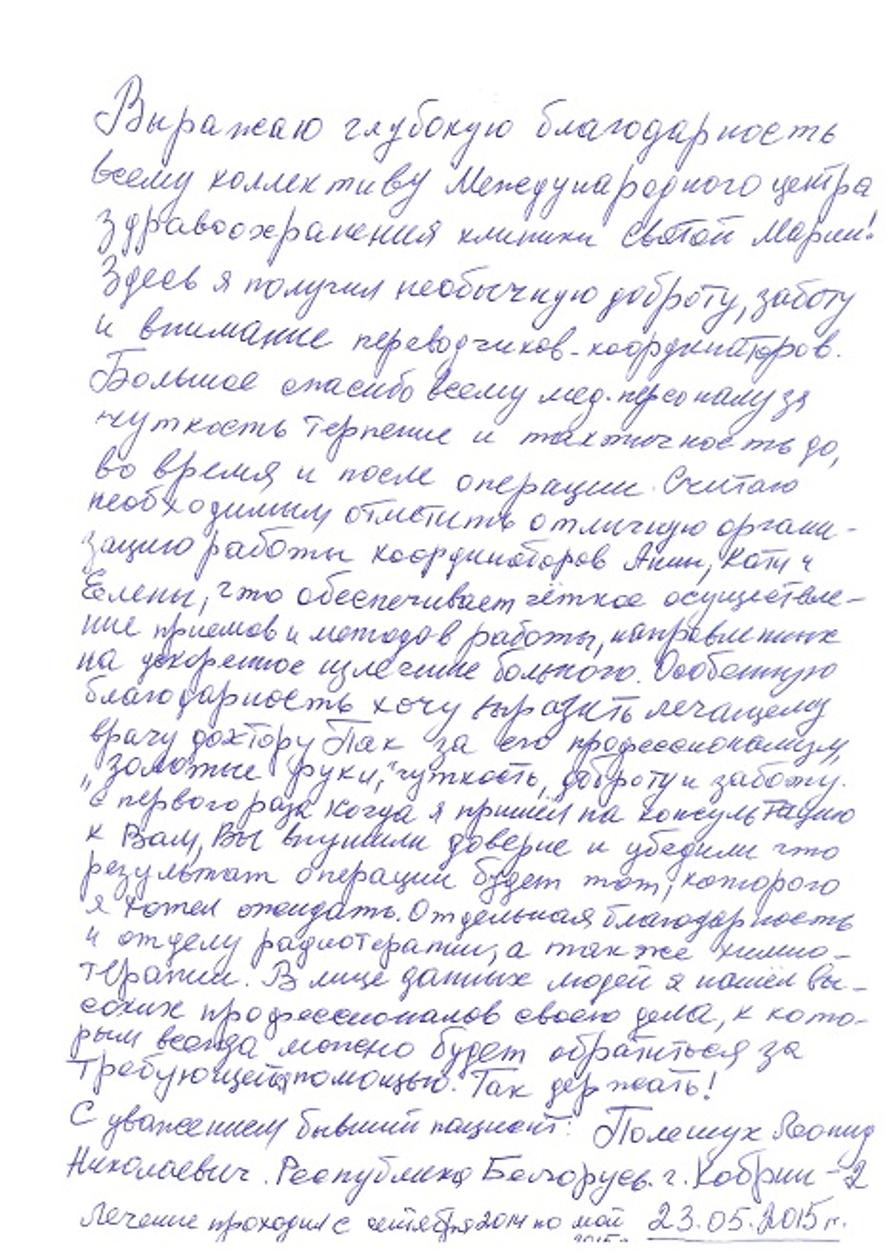 Выражаю глубокую благодарность
всему коллективу Международного центра
здравоохранения клиники святой Марии!
Здесь я получил необычную доброту, заботу
и внимание переводчиков-координаторов.
Большое спасибо всему мед. персоналу за
чуткость терпение и тактичность до,
во время и после операции. Считаю
необходимым отметить отличную органи-
зацию работы координаторов Анны, Кати и
Елены, что обеспечивает чёткое осуществле-
ние приемов и методов работы, направленных
на ускоренное излечение больного. Особенную
благодарность хочу выразить лечащему
врачу доктору Пак за его профессионализм,
„золотые руки," чуткость, доброту и заботу.
С первого раза когда я пришёл на консультацию
к Вам, Вы внушили доверие и убедили что
результат операции будет тот, которого
я хотел ожидать. Отдельная благодарность
и отделу радиотерапии, а также химио-
терапии. В лице данных людей я нашёл вы-
соких профессионалов своего дела, к кото-
рым всегда можно будет обратиться за
требующейся помощью. Так держать!
С уважением бывший пациент: Полещук Леонид
Николаевич. Республика Белорусь. г. Кобрин-2
Лечение проходил с сентября 2014 по май 23.05.2015г.
2015г.